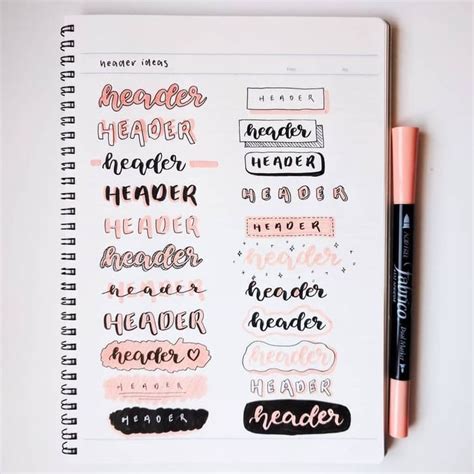 header ideas
header
HEADER
header
HEADER
HEADER
header
header
HEADER
header
HEADER
HEADER
HEADER
header
HEADER
HEADER
HEADER
header
header
header
header
HEADER
header
fabrico
Dual Marker